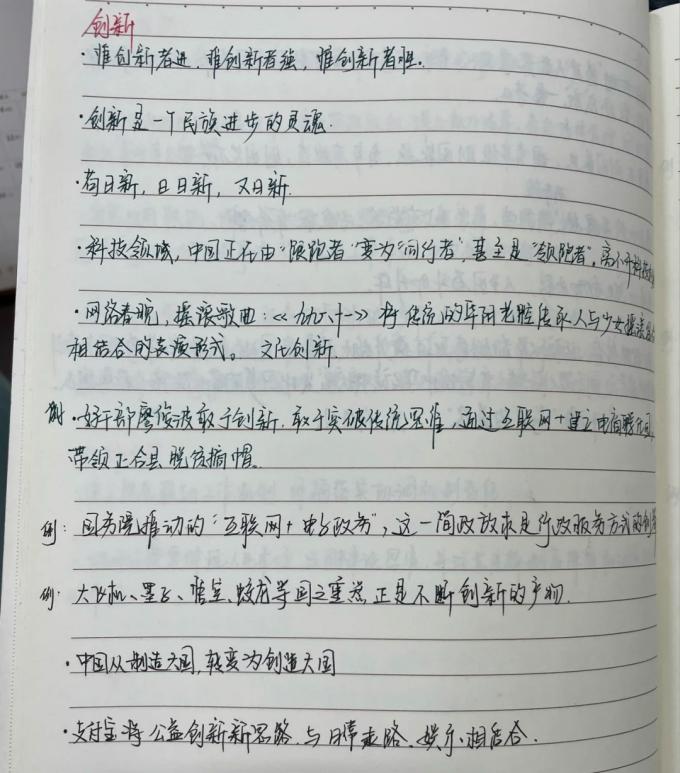 创新
·唯创新者进,唯创新者强,惟创新者胜。
·创新是一个民族进步的灵魂.
·苟日新,日日新,又日新.
·科技领域,中国正在由“跟跑者”变为“同行者”,甚至是“领跑者”,离不开科技创
·网络春晚,摇滚歌曲:《九九八十一》将传统的 老腔传承人与少女摇滚
相结合的表演形式。 文化创新.
例·好干部廖俊波敢于创新,敢于突破传统思维,通过互联网+建立电商 园,
带领正合县脱贫摘帽。
例:国务院推动的“互联网+电子政务”,这一简政放权是行政服务方式的创
例:大飞机、墨子、悟空、蛟龙等国之重器正是不断创新的产物.
·中国从制造大国,转变为创造大国
·支付宝将公益创新新思路,与日常走路、娱乐相结合.